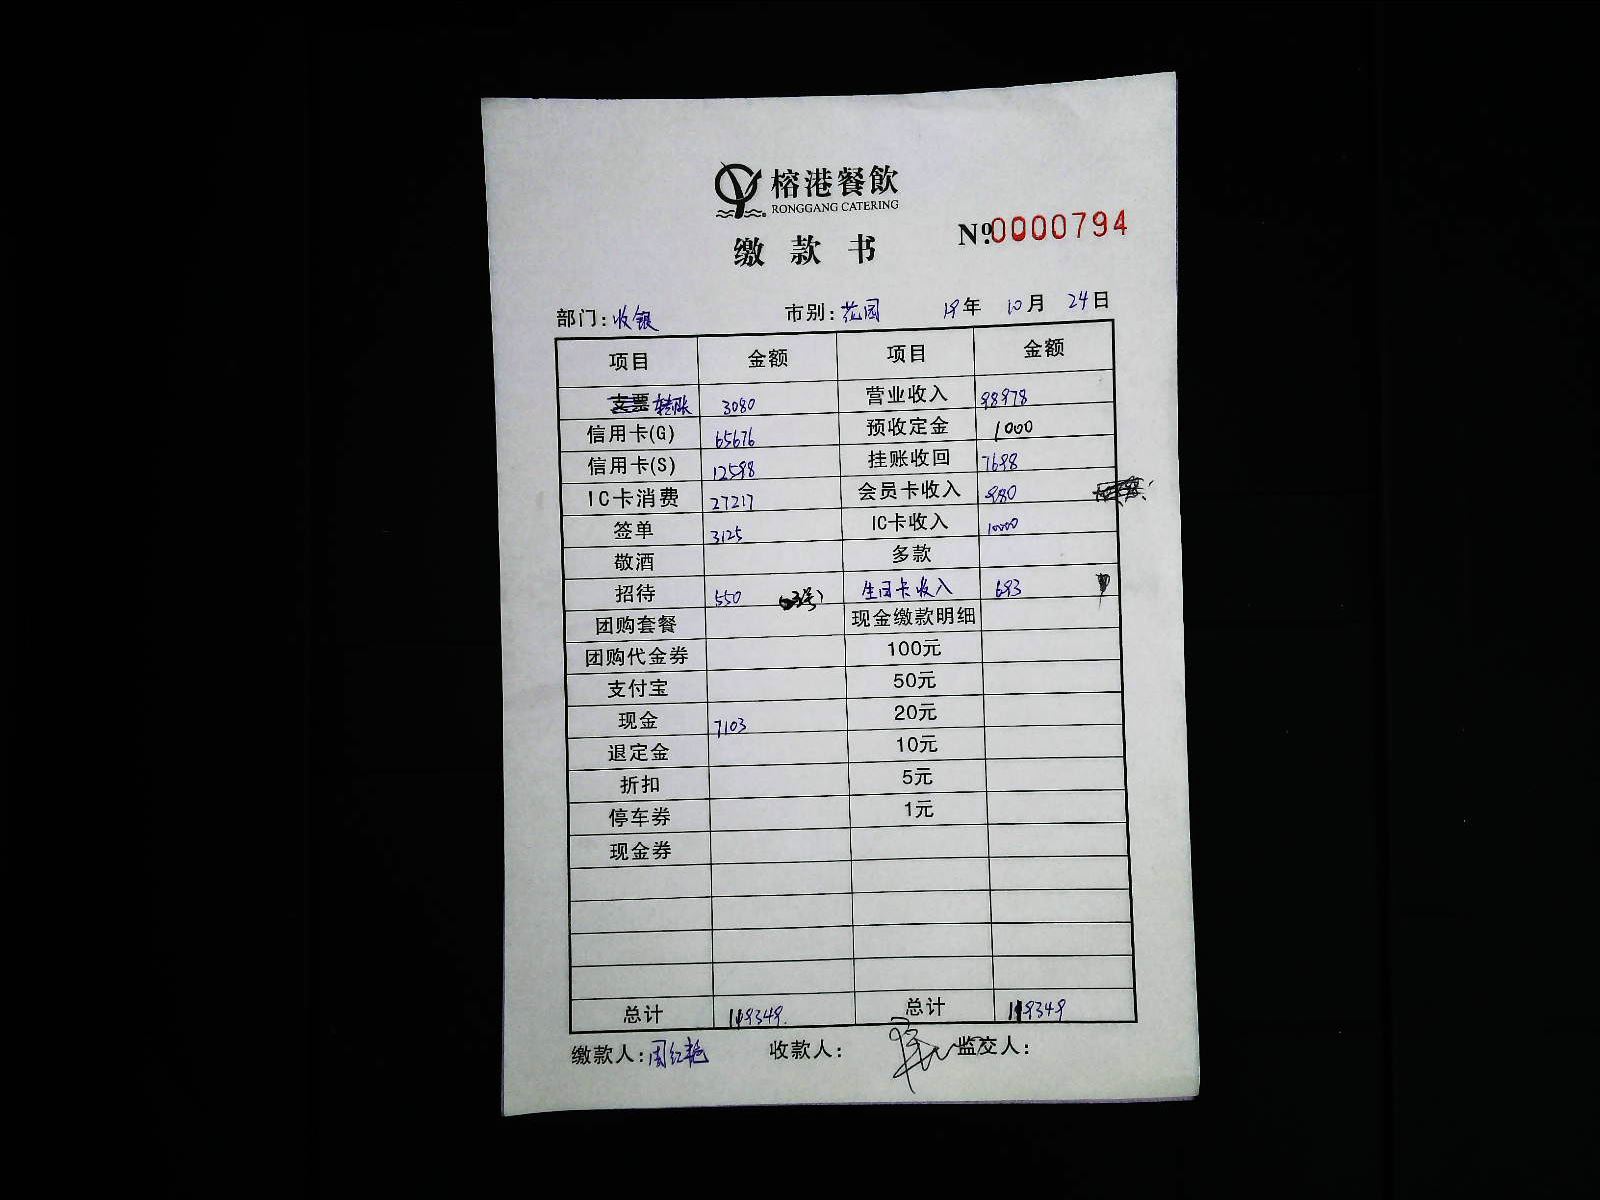 榕港餐飲
RONGGANG CATERING
缴款书
Nº:0000794
部门:收银 市别:花园 19年 10月 24日
项目 金额 项目 金额
支票 转账 3080 营业收入 98978
信用卡(G) 65676 预收定金 1000
信用卡(S) 12598 挂账收回 7698
IC卡消费 27217 会员卡收入 980
签单 3125 IC卡收入 10000
敬酒 多款
招待 550 生日卡收入 693
团购套餐 现金缴款明细
团购代金券 100元
支付宝 50元
现金 7103 20元
退定金 10元
折扣 5元
停车券 1元
现金券
总计 119349. 总计 119349
缴款人:周红艳 收款人: 监交人: